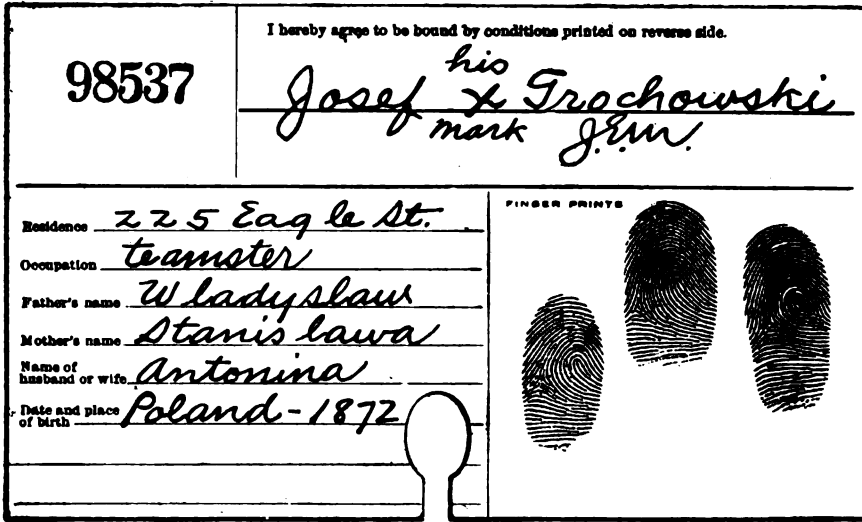 I hereby agree to be bound by conditions printed on reverse side.
98537
his
Josef x Trochowski
mark J.E.W.
Residence 225 Eagle St.
Occupation teamster
Father's name Wladyslaw
Mother's name Stanislawa
Name of husband or wife Antonina
Date and place of birth Poland - 1872
FINGER PRINTS